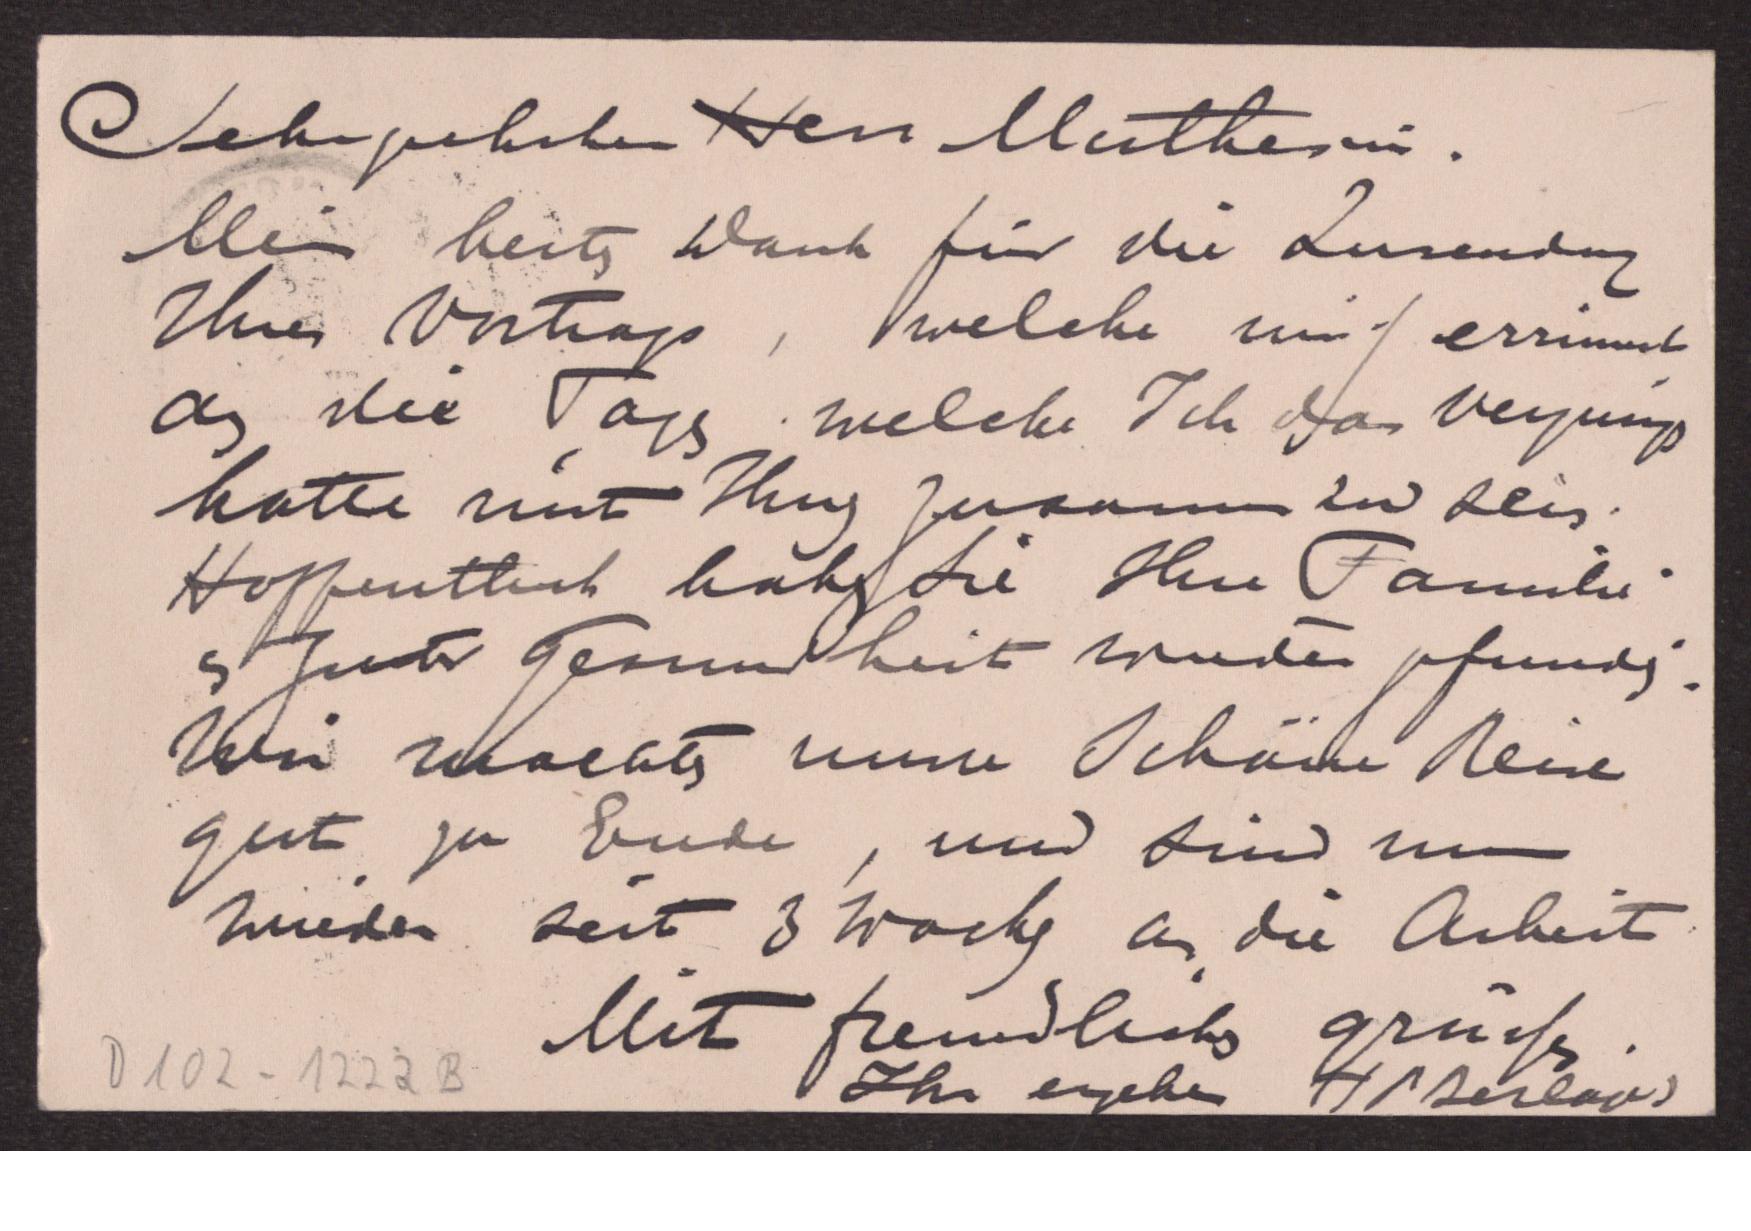 Sehrgeehrter Herr Muthesius.
Mein besten Dank für die Zusendung
Ihres Vortrags, welche mich errinnert
an die Tagen welche Ich das vergnügen
hatte mit Ihnen zusammen zu sein.
Hoffentlich haben Sie Ihre Familie
in guter Gesundheit wieder gefunden.
Wir machten unsere Schöne Reise
gut zu Ende, und sind nun
wieder seit 3 Wochen an die Arbeit.
Mit freundlichen grüßen.
Ihr ergeben HPBerlage
D102-1222B